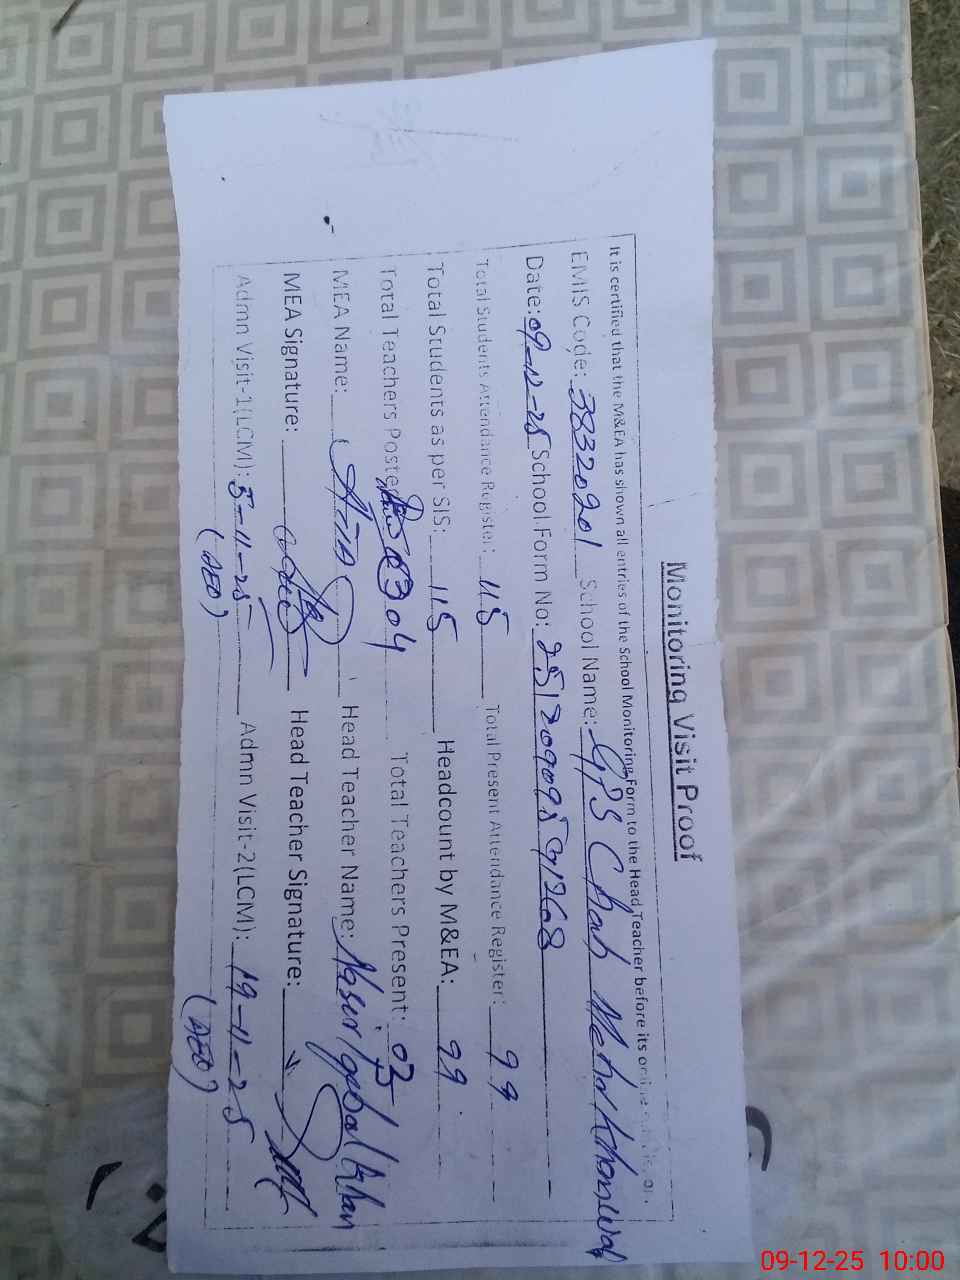 Monitoring Visit Proof
It is certified that the M&EA has shown all entries of the School Monitoring Form to the Head Teacher before its online
EMIS Code: 38320201 School Name: GPS Chah Mehar Khanwal
Date: 09-12-25 School Form No: 251209095
Total Students Attendance Register: 115 Total Present Attendance Register: 99
Total Students as per SIS: 115 Headcount by M&EA: 99
Total Teachers Posted 04 Total Teachers Present: 03
MEA Name: Head Teacher Name: Nasir Iqbal Khan
MEA Signature: Head Teacher Signature:
Admn Visit-1(LCM): 5-11-25 Admn Visit-2(LCM): 19-11-25
(AEO) (AEO)
09-12-25 10:00